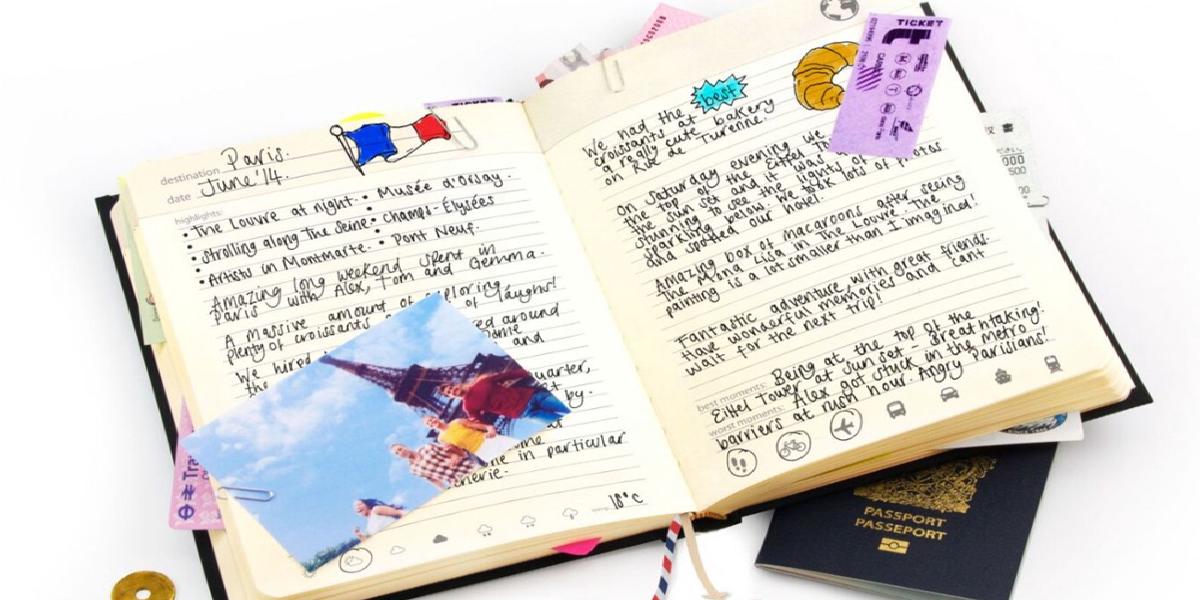 destination Paris.
date June '14.
highlights:
• The Louvre at night. • Musée d'Orsay.
• strolling along The Seine. • Champs-Élysées
• Artists in Montmarte. • Pont Neuf.
Amazing long weekend spent in
Paris with Alex, Tom and Gemma.
A massive amount of exploring,
plenty of croissants of laughs!
We hired around
the and
quarter,
by.
in particular
cherie.
18°C
We had the best
croissants at
a really cute bakery
on Rue de Turenne.
On Saturday evening we
the top of the Eiffel
the sun set and it was
stunning to see the lights of
sparkling below. We took lots of photos
and spotted our hotel.
Amazing box of macaroons after seeing
The Mona Lisa in The Louvre. The
painting is a lot smaller than I imagined!
Fantastic adventure with great friends.
Have wonderful memories and cant
wait for the next trip!
best moments: Being at the top of the
Eiffel Tower at sunset - Breathtaking!
worst moments: Alex got stuck in the metro
barriers at rush hour. Angry Parisians!
TICKET
TICKET
PASSPORT
PASSEPORT